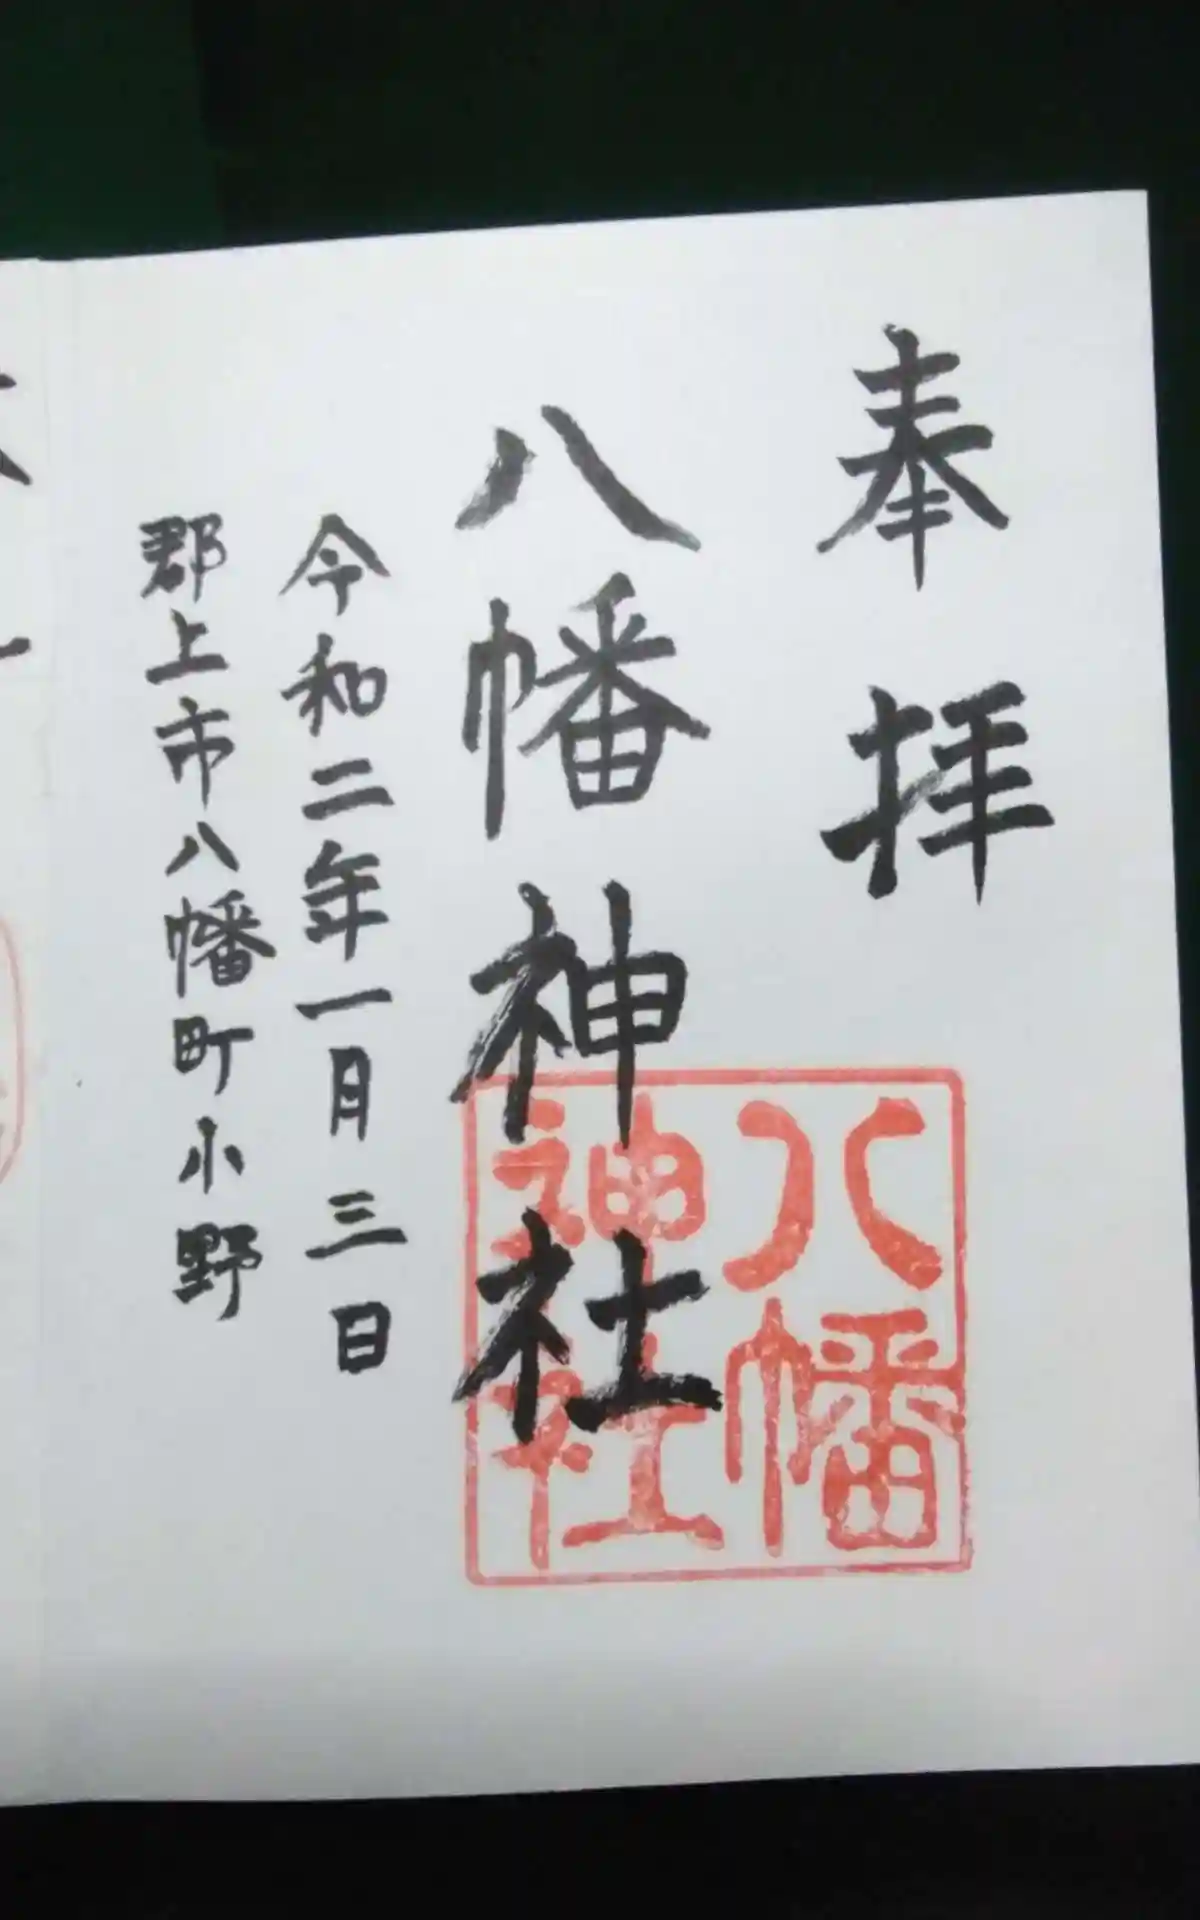 奉拝
八幡神社
令和二年一月三日
郡上市八幡町小野
八幡
神社